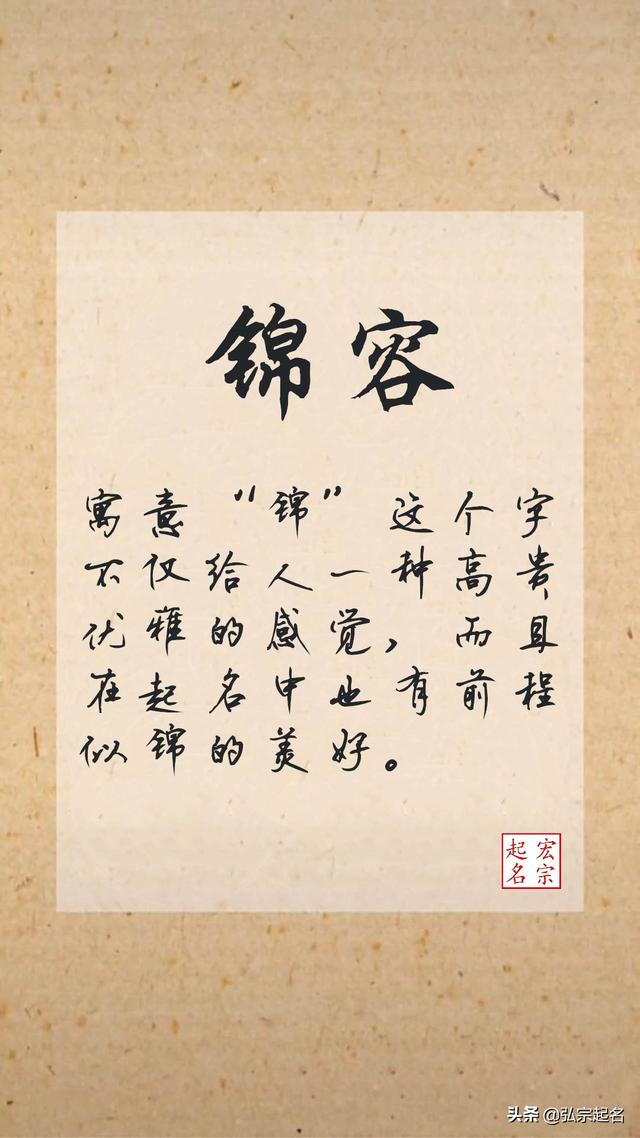 锦容
寓意“锦”这个字
不仅给人一种高贵
优雅的感觉，而且
在起名中也有前程
似锦的美好。
宏宗
起名
头条 @弘宗起名